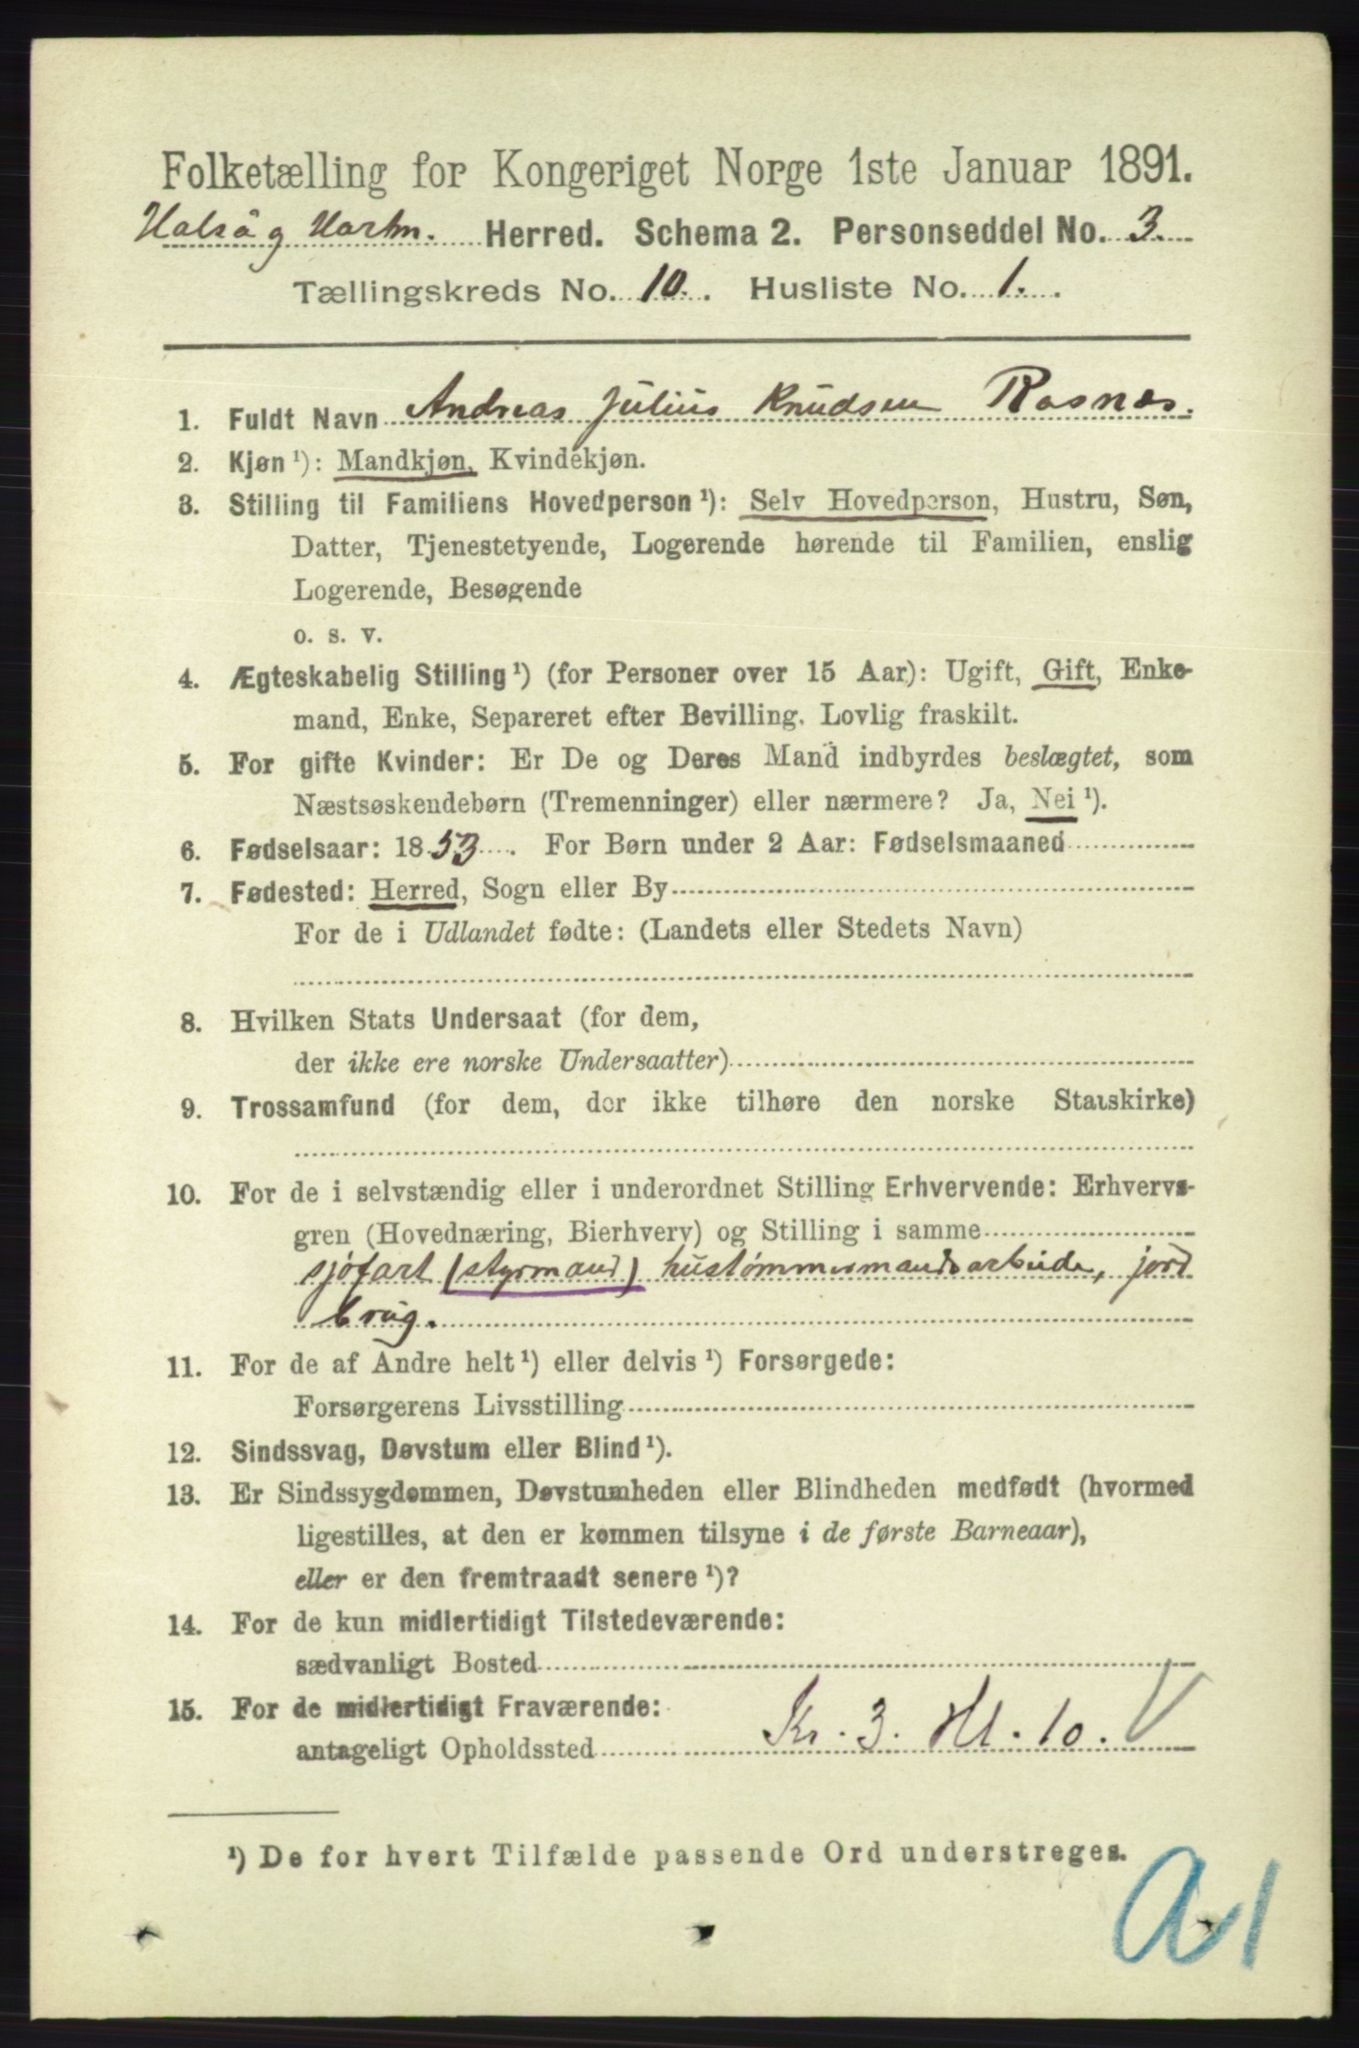 Folketælling for Kongeriget Norge 1ste Januar 1891.
Halså g Harkm. Herred. Schema 2. Personseddel No. 3.
Tællingskreds No. 10. Husliste No. 1.
1. Fuldt Navn Andreas Julius Knudsen Rosnes.
2. Kjøn ¹): Mandkjøn, Kvindekjøn.
3. Stilling til Familiens Hovedperson ¹): Selv Hovedperson, Hustru, Søn,
Datter, Tjenestetyende, Logerende hørende til Familien, enslig
Logerende, Besøgende
o. s. v.
4. Ægteskabelig Stilling ¹) (for Personer over 15 Aar): Ugift, Gift, Enke-
mand, Enke, Separeret efter Bevilling. Lovlig fraskilt.
5. For gifte Kvinder: Er De og Deres Mand indbyrdes beslægtet, som
Næstsøskendebørn (Tremenninger) eller nærmere? Ja, Nei ¹).
6. Fødselsaar: 1853. For Børn under 2 Aar: Fødselsmaaned
7. Fødested: Herred, Sogn eller By
For de i Udlandet fødte: (Landets eller Stedets Navn)
8. Hvilken Stats Undersaat (for dem,
der ikke ere norske Undersaatter)
9. Trossamfund (for dem, der ikke tilhøre den norske Statskirke)
10. For de i selvstændig eller i underordnet Stilling Erhvervende: Erhvervs-
gren (Hovednæring, Bierhverv) og Stilling i samme
sjøfart (styrmand) hustømmermandsarbeide, jord
brug.
11. For de af Andre helt ¹) eller delvis ¹) Forsørgede:
Forsørgerens Livsstilling
12. Sindssvag, Døvstum eller Blind ¹).
13. Er Sindssygdommen, Døvstumheden eller Blindheden medfødt (hvormed
ligestilles, at den er kommen tilsyne i de første Barneaar),
eller er den fremtraadt senere ¹)?
14. For de kun midlertidigt Tilstedeværende:
sædvanligt Bosted
15. For de midlertidigt Fraværende:
antageligt Opholdssted Kr. 3. Hl. 10. V
¹) De for hvert Tilfælde passende Ord understreges.
A1